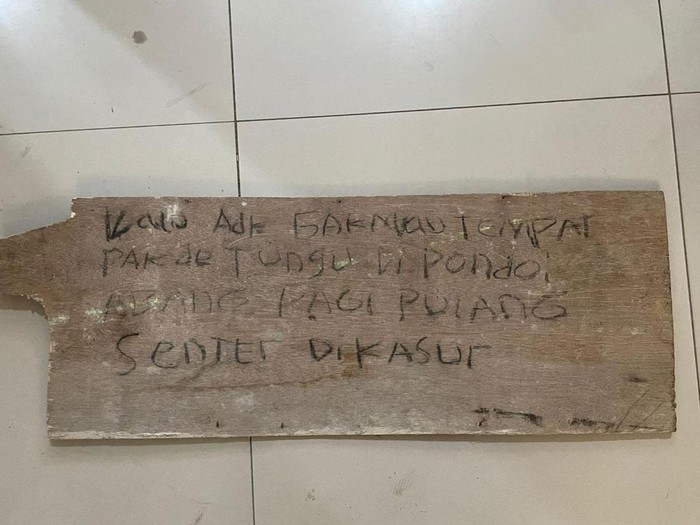 Kalo Adk GAKMAU TEMPAT
PAKde TUNGU DI PONDOI
ABANG PAGI PULANG
SENTER DIKASUR